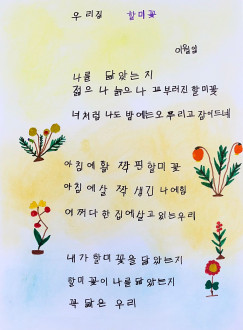 우리집 할미꽃
이월일
나를 닮았는지
젊으나 늙으나 꼬부러진 할미꽃
너처럼 나도 밤에는 오무리고 잠이드네
아침에 활짝 핀 할미꽃
아침에 살짝 생긴 나에힘
어쩌다 한 집에 살고 있는 우리
내가 할미꽃을 닮았는지
할미꽃이 나를 닮았는지
꼭 닮은 우리